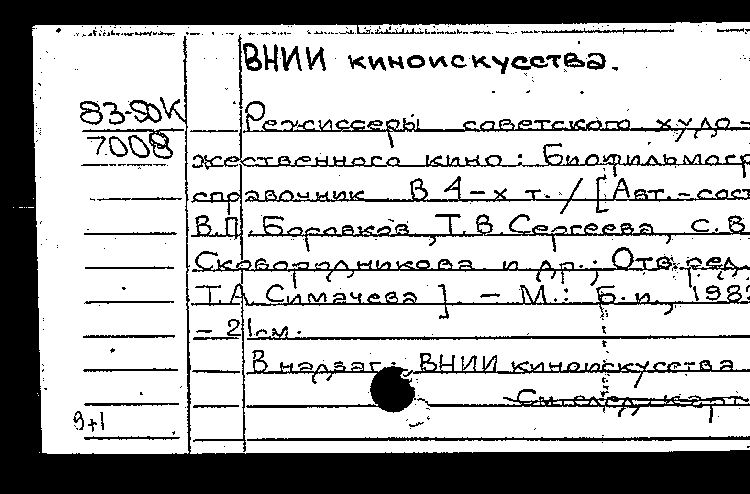 ВНИИ киноискусства.
83-50К
7008
Режиссеры советского худо-
жественного кино: Биофильмогр
справочник В 4-х т. / [Авт.-сост
В.П. Боровков, Т.В. Сергеева, С.В
Сковородникова и др.; Отв. ред.
Т.А. Симачева]. - М.: Б.и., 198
- 21см.
В надзаг.: ВНИИ киноискусства
См. след. карт
9+1